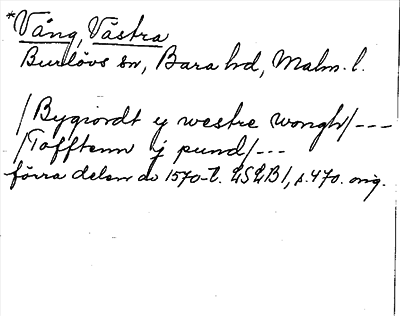 *Vång, Västra
Burlövs sn, Bara hd, Malm. l.
/Bygiordt y westre wongh/---
/Tofftenn j pund/---
förra delen av 1570-t. LSLB1, s.470. orig.